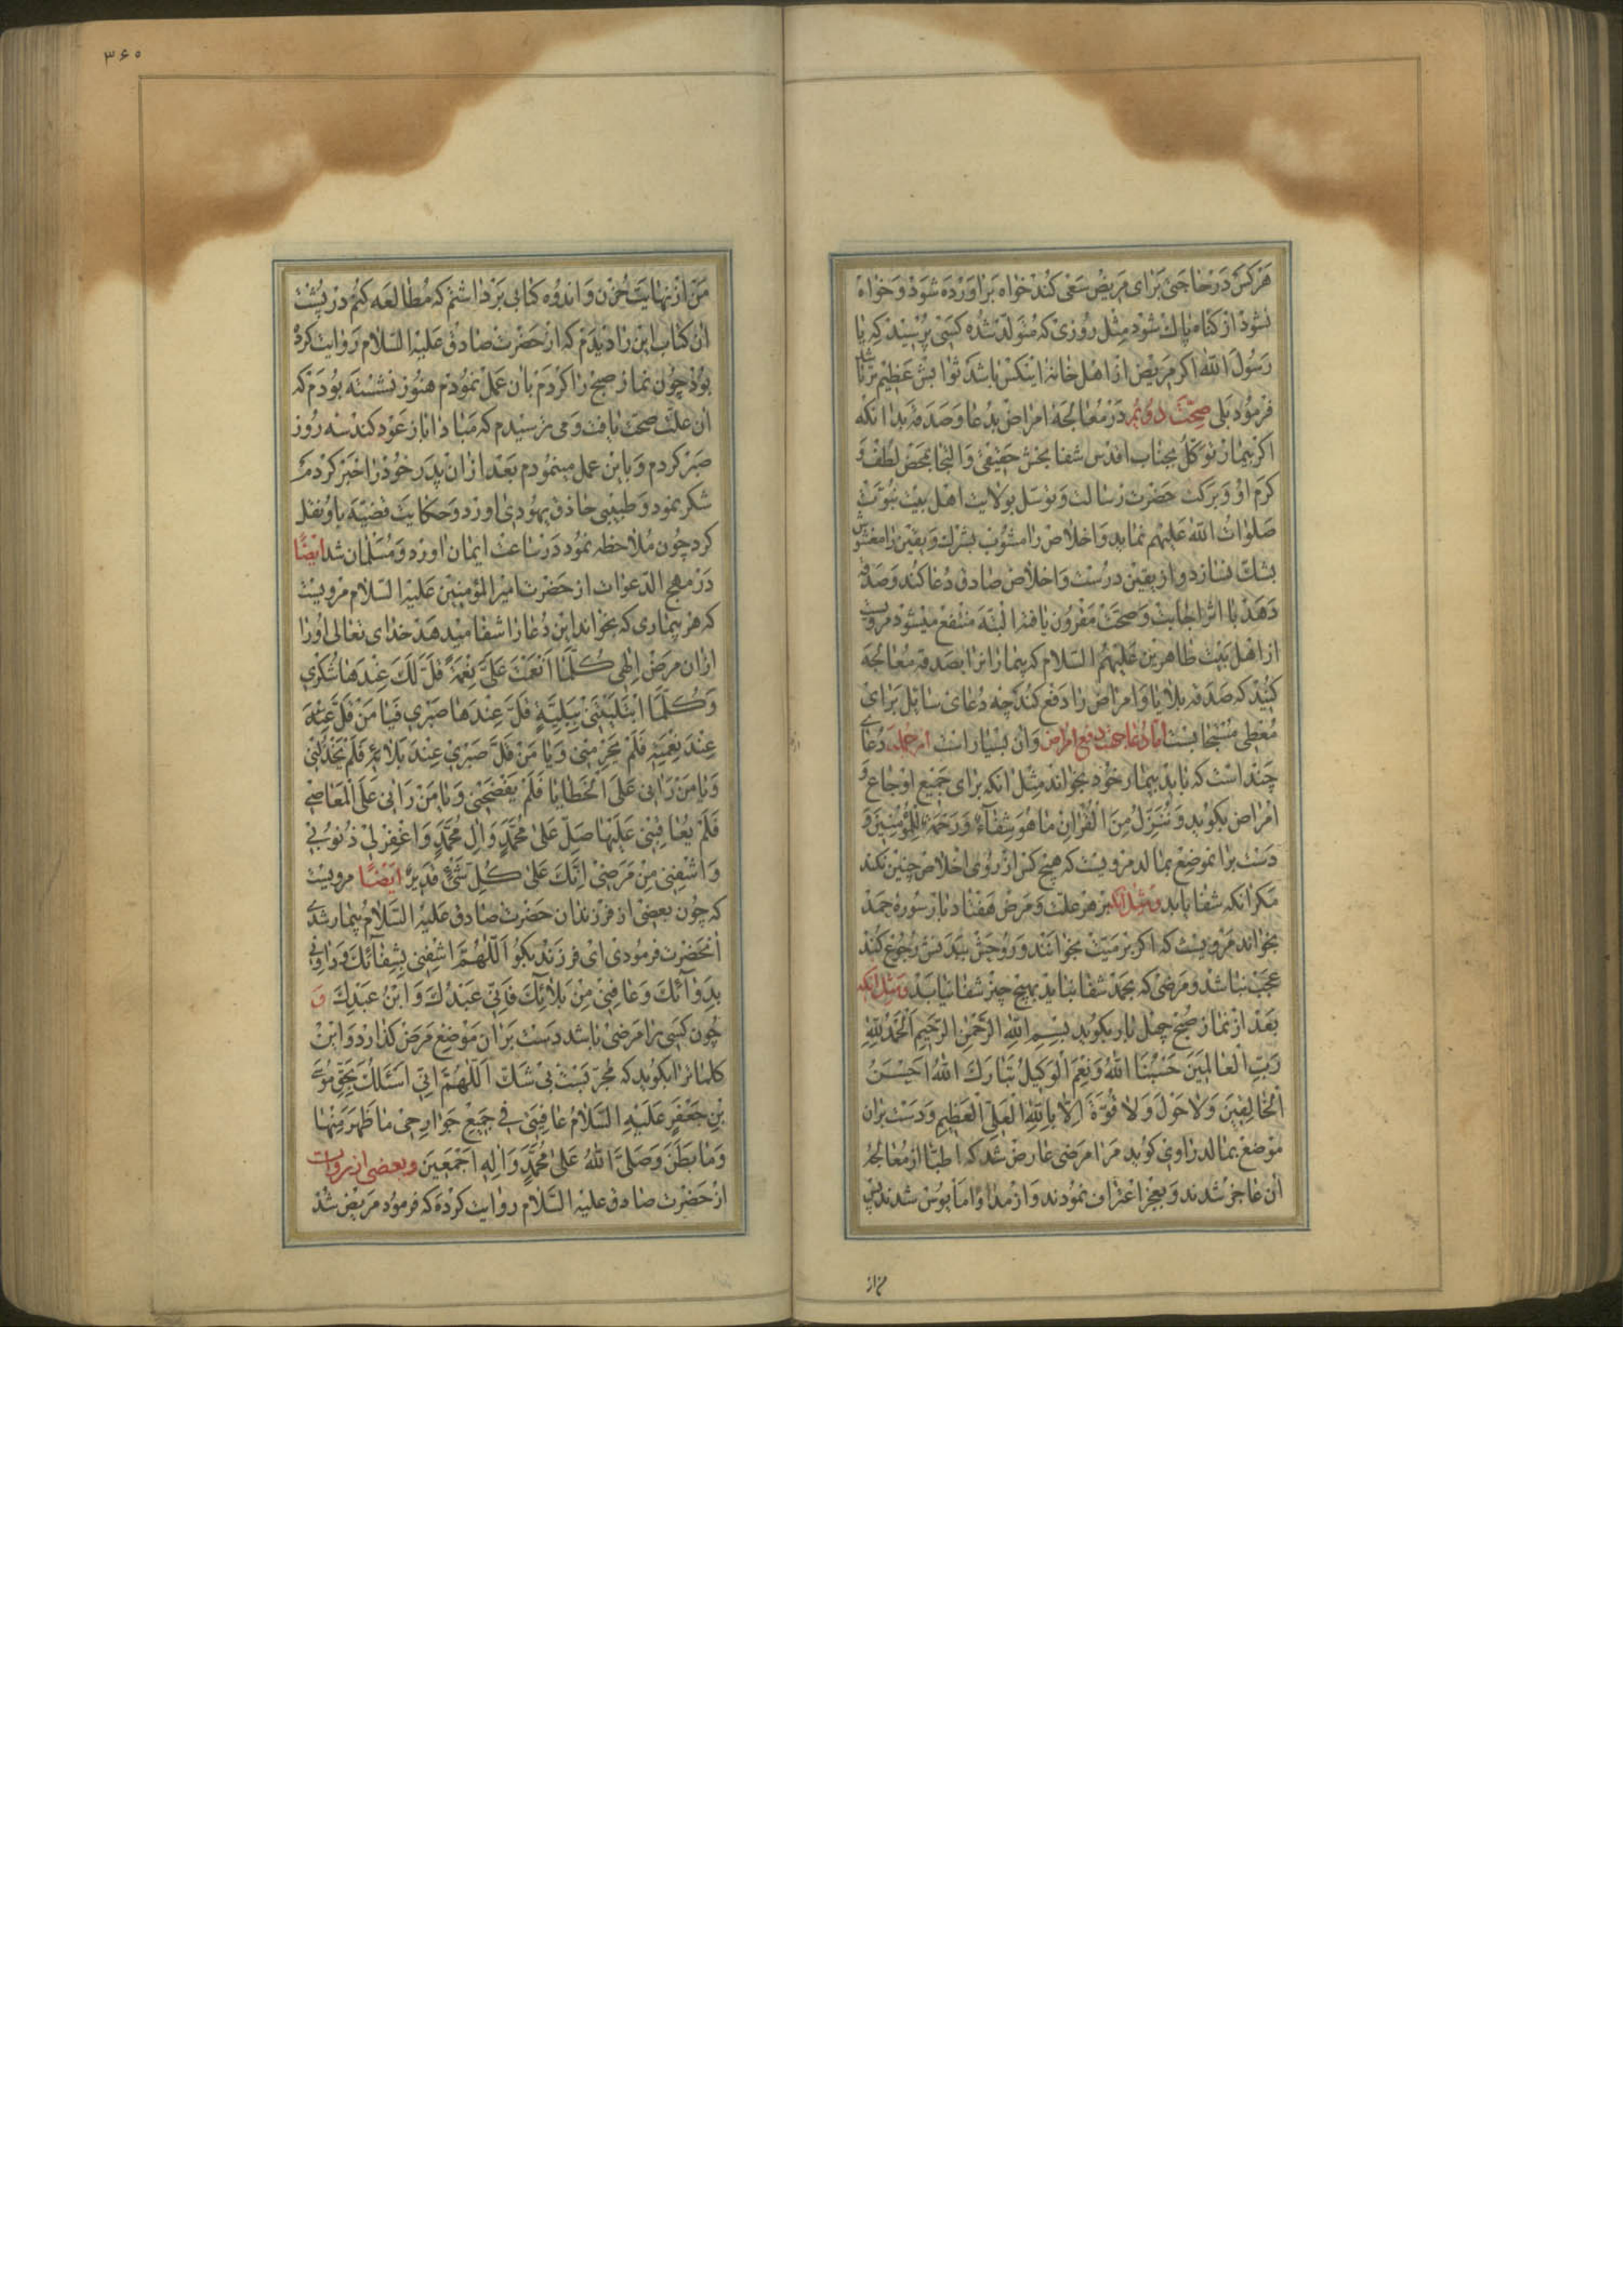 هر کس در حاجتی برای مریض سعی کند خواه براورده شود و خواه
نشود از کناه پاک شود مثل روزی که متولد شده کسی پرسید که یا
رسول الله اکر مریض از اهل خانهٔ اینکس باشد ثوابش عظیم تر باشد
فرمود بلی صحّت دوئم در معالجهٔ امراض بدعا و صدقه بدانکه
اکر بیمار توکّل بجناب اقدس شفا بخش حقیقی و التجا بمحض لطف و
کرم او و برکت حضرت رسالت و توسل بولایت اهل بیت نبوّت
صلوات الله علیهم نماید و اخلاص را مشوب بشرک و یقین را مغشوش
بشک نسازد و از یقین درست و اخلاص صادق دعا کند و صدقه
دهد با اثر اجابت و صحّت مقرون یافته البتّه منتفع میشود مرویست
از اهل بیت طاهرین علیهم السلام که بیماراترا بصدقه معالجه
کنید که صدقه بلایا و امراض را دفع کند چه دعای سایل برای
معطی مستجابست امّا دعا جهت دفع امراض و ان بسیار است از جمله دعای
چند است که باید بیمار خود بخواند مثل انکه برای جمیع اوجاع و
امراض بکوید و ننزّل من القران ما هو شفآء و رحمة للمؤمنین و
دست برانموضع بمالد مرویست که هیچ کس از روی اخلاص چنین نکند
مکر انکه شفا یابد و مثل انکه بر هر علّت و مرض هفتاد بار سوره حمد
بخواند مرویست که اکر بر میّت بخوانند و روحش ببدنش رجوع کند
عجب نباشد و مرضی که بحمد شفا نیابد بهیچ چیز شفا نیابد و مثل انکه
بعد از نماز صبح چهل بار بکوید بسم الله الرّحمن الرّحیم الحمد لله
ربّ العالمین حسبنا الله و نعم الوکیل تبارک الله احسن
الخالقین و لا حول و لا قوّة الّا بالله العلیّ العظیم و دست بران
موضع بمالد راوی کوید مرا مرضی عارض شد که اطبّا از معالجهٔ
ان عاجز شدند و بعجز اعتراف نمودند و از مداوا مایوس شدند پس
من از
۳۶۰
من از نهایت حزن و اندوه کتابی برداشتم که مطالعه کنم در پشت
ان کتاب این را دیدم که از حضرت صادق علیه السّلام روایت کرده
بود چون نماز صبح را کردم بان عمل نمودم هنوز نشسته بودم که
ان علّت صحّت یافت و می ترسیدم که مبادا باز عود کند سه روز
صبر کردم و باین عمل مینمودم بعد از ان پدر خود را خبر کردم
شکر نمود و طبیبی حاذق یهودی اورد و حکایت قضیّه باو نقل
کرد چون ملاحظه نمود در ساعت ایمان اورد و مسلمان شد ایضًا
در مهج الدّعوات از حضرت امیر المؤمنین علیه السّلام مرویست
که هر بیماری که بخواند این دعا را شفا میدهد خدای تعالی او را
ازان مرض الهی کلّما انعمت علیّ نعمة قلّ لک عندها شکری
و کلّما ابتلیتنی ببلیّة قلّ عندها صبری فیا من قلّ
عند نعمه فلم یحرمنی و یا من قلّ صبری عند بلائه فلم یخذلنی
و یا من رانی علی الخطایا فلم یفضحنی و یا من رانی علی المعاصی
فلم یعاقبنی علیها صلّ علی محمّد و ال محمّد و اغفر لی ذنوبی
و اشفنی من مرضی انّک علی کلّ شیء قدیر ایضًا مرویست
که چون بعضی از فرزندان حضرت صادق علیه السّلام بیمار شدی
انحضرت فرمودی ای فرزند بکو اللّهمّ اشفنی بشفائک و داونی
بدوائک و عافنی من بلائک فانّی عبدک و ابن عبدک و
چون کسی را مرضی باشد دست بران موضع مرض کذارد و این
کلماترا بکوید که مجرّبست بی شکّ اللّهمّ انّی اسئلک بحقّ موسی
بن جعفر علیه السّلام عافنی فی جمیع جوارحی ما ظهر منها
و ما بطن و صلّی الله علی محمّد و اله اجمعین و بعضی از روات
از حضرت صادق علیه السّلام روایت کرده که فرمود مریض شد